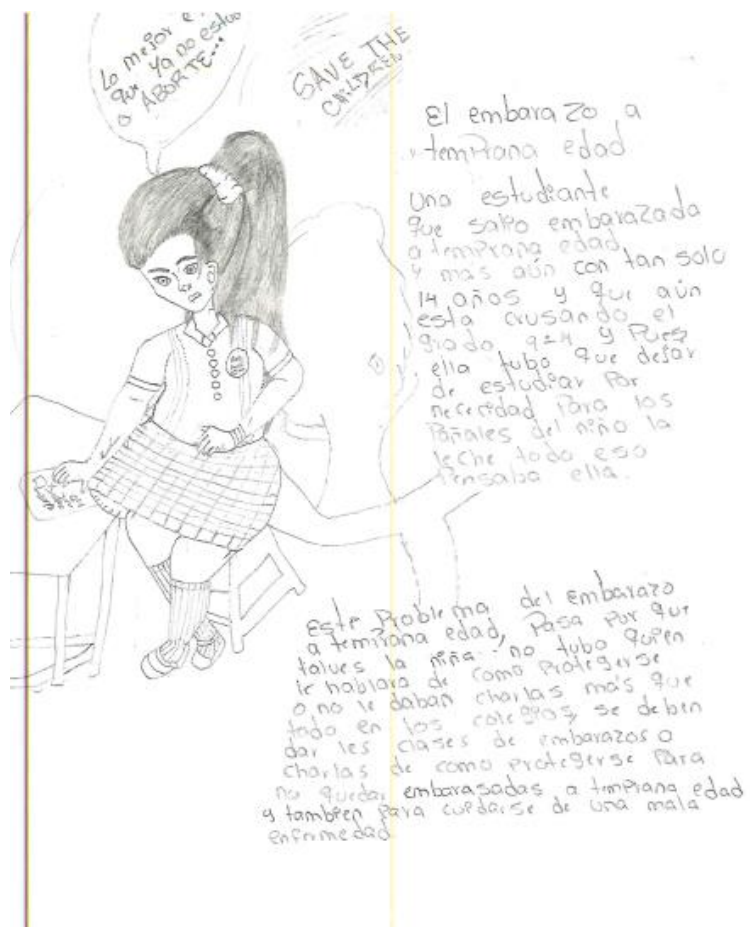 Lo mejor e
que ya no estud
o ABORTE...
SAVE THE
CHILDREN
El embarazo a
temprana edad
Una estudiante
que salio embarazada
a temprana edad
y mas aún con tan solo
14 años y que aún
esta crusando el
grado y Pues
ella tubo que dejar
de estudiar Por
Para los
Pañales del niño la
leche todo eso
Pensaba ella.
Este Problema del embarazo
a temprana edad, Pasa por que
talves la niña no tubo quien
le hablara de como Protegerse
o no le daban charlas más que
todo en los colegios, se deben
dar les clases de embarazos o
charlas de como protegerse Para
no quedar embarasadas a temprana edad
y tambien para cuidarse de una mala
enfermedad